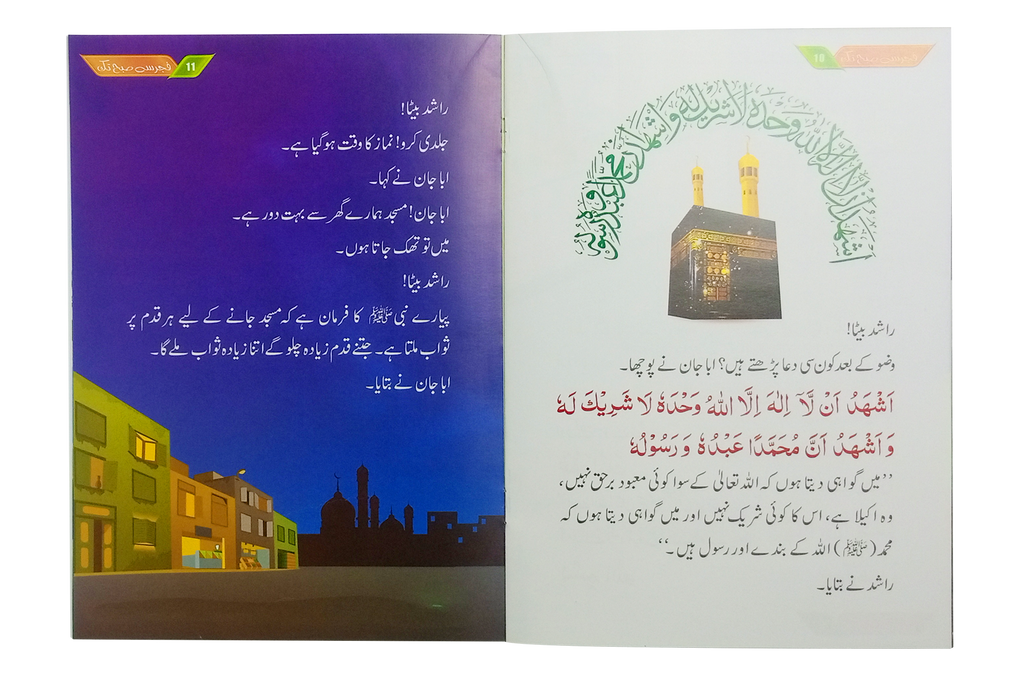 فجر سے صبح تک
10
اشهد ان لا اله الا الله وحده لا شريك له و اشهد ان محمدا عبده و رسوله
راشد بیٹا!
وضو کے بعد کون سی دعا پڑھتے ہیں؟ ابا جان نے پوچھا۔
اَشْهَدُ اَنْ لَّآ اِلٰهَ اِلَّا اللّٰهُ وَحْدَهٗ لَا شَرِيْكَ لَهٗ
وَ اَشْهَدُ اَنَّ مُحَمَّدًا عَبْدُهٗ وَ رَسُوْلُهٗ
’’میں گواہی دیتا ہوں کہ اللہ تعالیٰ کے سوا کوئی معبود برحق نہیں،
وہ اکیلا ہے، اس کا کوئی شریک نہیں اور میں گواہی دیتا ہوں کہ
محمد (ﷺ) اللہ کے بندے اور رسول ہیں۔‘‘
راشد نے بتایا۔
فجر سے صبح تک
11
راشد بیٹا!
جلدی کرو! نماز کا وقت ہو گیا ہے۔
ابا جان نے کہا۔
ابا جان! مسجد ہمارے گھر سے بہت دور ہے۔
میں تو تھک جاتا ہوں۔
راشد بیٹا!
پیارے نبی ﷺ کا فرمان ہے کہ مسجد جانے کے لیے ہر قدم پر
ثواب ملتا ہے۔ جتنے قدم زیادہ چلو گے اتنا زیادہ ثواب ملے گا۔
ابا جان نے بتایا۔